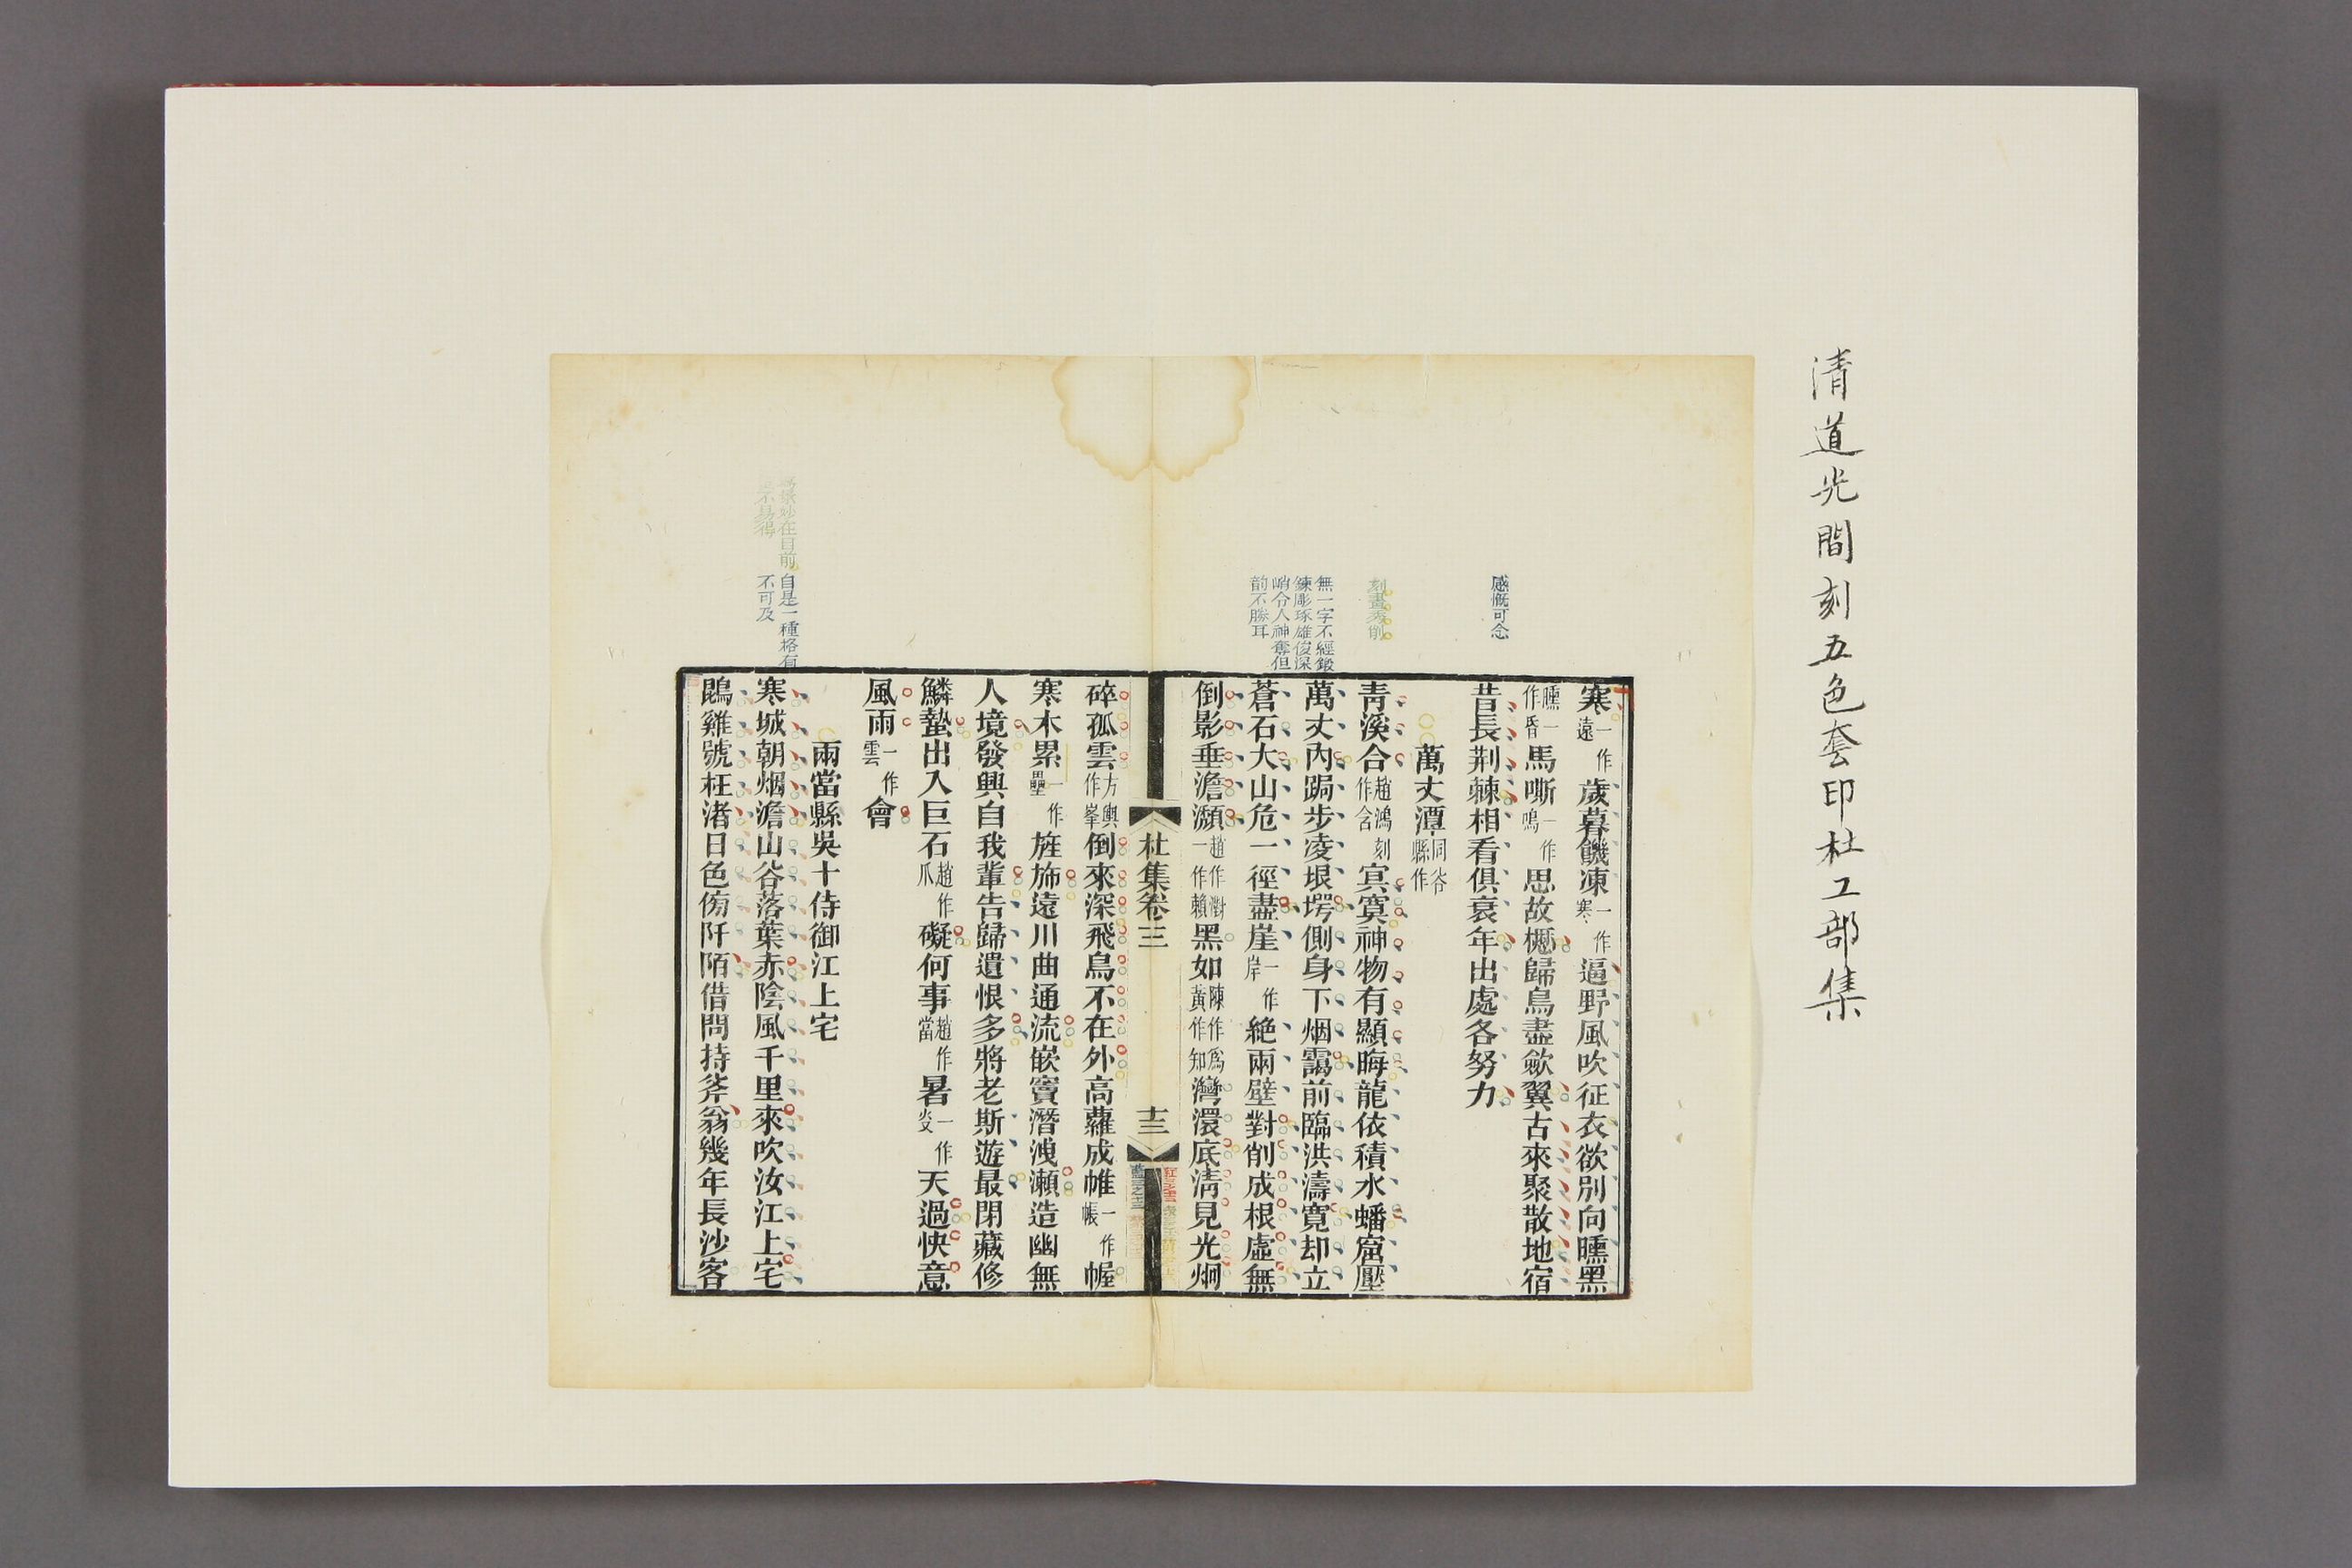 清道光間刻五色套印杜工部集
感慨可念
刻畫秀削
無一字不經鍛
鍊彫琢雄俊深
峭令人神奪但
韵不勝耳
寒一作遠歲暮饑凍一作寒逼野風吹征衣欲別向曛黑
曛一作昏馬嘶一作鳴思故櫪歸鳥盡歛翼古來聚散地宿
昔長荆棘相看俱衰年出處各努力
萬丈潭同谷縣作
青溪合趙鴻刻作含冥寞神物有顯晦龍依積水蟠窟壓
萬丈內跼步凌垠堮側身下烟靄前臨洪濤寬却立
蒼石大山危一徑盡崖一作岸絶兩壁對削成根虛無
倒影垂澹瀩趙作濧一作賴黑如陳作爲黃作知灣澴底清見光炯
杜集卷三
十三
碎孤雲方輿作峯倒來深飛鳥不在外高蘿成帷一作帳幄
寒木累一作壘旌斾遠川曲通流嵌竇潛洩瀨造幽無
人境發興自我輩告歸遺恨多將老斯遊最閉藏修
鱗蟄出入巨石趙作爪礙何事趙作當暑一作炎天過快意
風雨一作雲會
自是一種格有
不可及
寫景妙在目前
不易得
兩當縣吳十侍御江上宅
寒城朝烟澹山谷落葉赤陰風千里來吹汝江上宅
鵾雞號枉渚日色傍阡陌借問持斧翁幾年長沙客